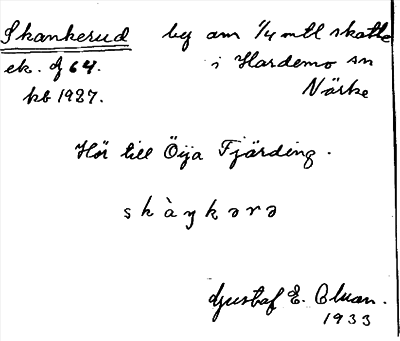 Skankerud by om 1/4 mtl skatte
ek. bl 64. i Hardemo sn
kb 1927. Närke
Hör till Öija Fjärding.
skàŋkərə
Gustaf E.
1933